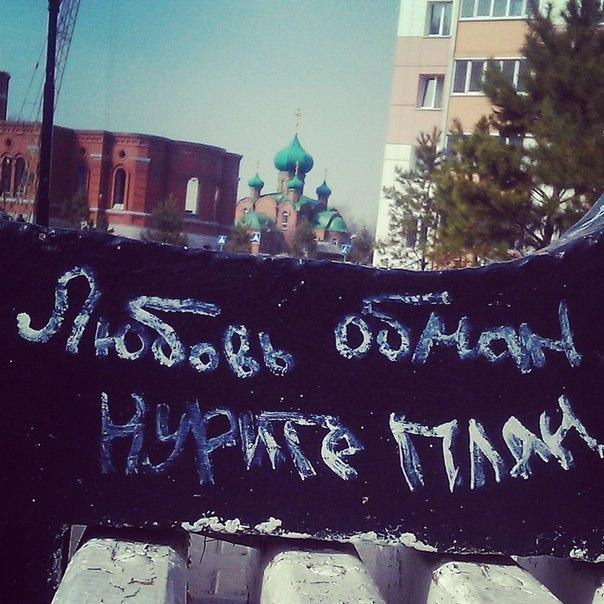 Любовь обман
Курите План